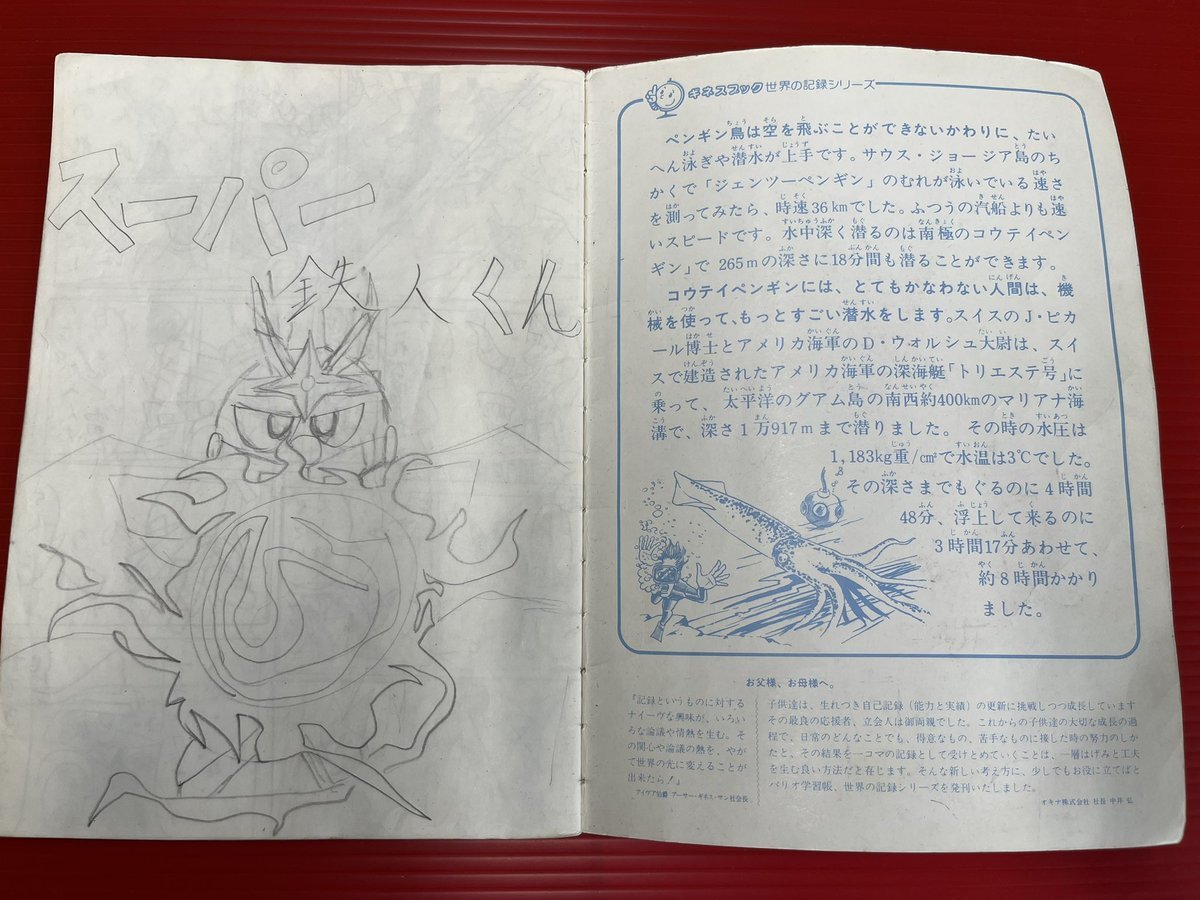 スーパー
鉄人くん
ギネスブック世界の記録シリーズ
ペンギン鳥は空を飛ぶことができないかわりに、たい
へん泳ぎや潜水が上手です。サウス・ジョージア島のち
かくで「ジェンツーペンギン」のむれが泳いでいる速さ
を測ってみたら、時速36kmでした。ふつうの汽船よりも速
いスピードです。水中深く潜るのは南極のコウテイペン
ギン」で 265mの深さに18分間も潜ることができます。
コウテイペンギンには、とてもかなわない人間は、機
械を使って、もっとすごい潜水をします。スイスのJ・ピカ
ール博士とアメリカ海軍のD・ウォルシュ大尉は、スイ
スで建造されたアメリカ海軍の深海艇「トリエステ号」に
乗って、太平洋のグアム島の南西約400kmのマリアナ海
溝で、深さ1万917mまで潜りました。その時の水圧は
1,183kg重/cm²で水温は3℃でした。
その深さまでもぐるのに4時間
48分、浮上して来るのに
3時間17分あわせて、
約8時間かかり
ました。
お父様、お母様へ。
『記録というものに対する
ナイーヴな興味が、いろい
ろな論議や情熱を生む。そ
の関心や論議の熱を、やが
て世界の光に変えることが
出来たら!』
アイヴア伯爵 アーサー・ギネス・サン社会長
子供達は、生れつき自己記録(能力と実績)の更新に挑戦しつつ成長しています
その最良の応援者、立会人は御両親でした。これからの子供達の大切な成長の過
程で、日常のどんなことでも、得意なもの、苦手なものに接した時の努力のしか
たと、その結果を一コマの記録として受けとめていくことは、一層はげみと工夫
を生む良い方法だと存じます。そんな新しい考え方に、少しでもお役に立てばと
バリオ学習帳、世界の記録シリーズを発刊いたしました。
オキナ株式会社 社長 中井 弘